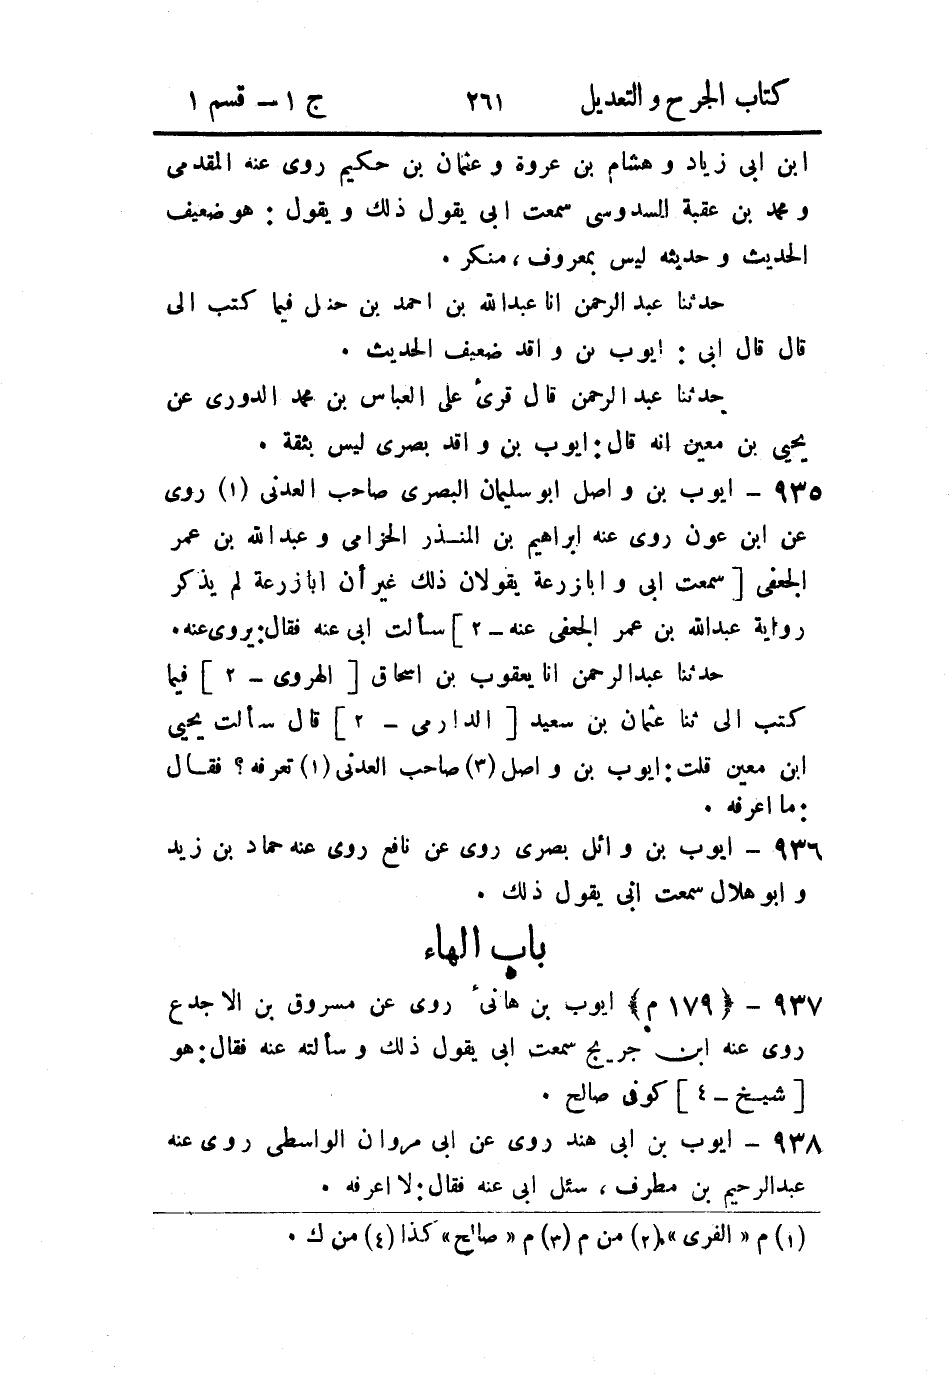 كتاب الجرح والتعديل ٢٦١ ج ١ – قسم ١
ابن ابى زياد و هشام بن عروة و عثمان بن حكيم روى عنه المقدمى
و محمد بن عقبة السدوسى سمعت ابى يقول ذلك و يقول : هو ضعيف
الحديث و حديثه ليس بمعروف ، منكر .
حدثنا عبد الرحمن انا عبدالله بن احمد بن حنبل فيما كتب الى
قال قال ابى : ايوب بن واقد ضعيف الحديث .
حدثنا عبد الرحمن قال قرئ على العباس بن محمد الدورى عن
يحيى بن معين انه قال : ايوب بن واقد بصرى ليس بثقة .
٩٣٥ – ايوب بن واصل ابو سليمان البصرى صاحب العدنى (١) روى
عن ابن عون روى عنه ابراهيم بن المنـذر الحزامى و عبدالله بن عمر
الجعفى [ سمعت ابى و ابا زرعة يقولان ذلك غير أن ابا زرعة لم يذكر
رواية عبدالله بن عمر الجعفى عنه – ٢ ] سألت ابى عنه فقال : يروى عنه .
حدثنا عبدالرحمن انا يعقوب بن اسحاق [ الهروى – ٢ ] فيما
كتب الى ثنا عثمان بن سعيد [ الدارمى – ٢ ] قال سألت يحيى
ابن معين قلت : ايوب بن واصل (٣) صاحب العدنى (١) تعرفه ؟ فقـال
: ما اعرفه .
٩٣٦ – ايوب بن وائل بصرى روى عن نافع روى عنه حماد بن زيد
و ابو هلال سمعت ابى يقول ذلك .
باب الهاء
٩٣٧ – ﴿ ١٧٩ م ﴾ ايوب بن هانئ روى عن مسروق بن الاجدع
روى عنه ابن جريج سمعت ابى يقول ذلك و سألته عنه فقال : هو
[ شيـخ – ٤ ] كوفى صالح .
٩٣٨ – ايوب بن ابى هند روى عن ابى مروان الواسطى روى عنه
عبدالرحيم بن مطرف ، سئل ابى عنه فقال : لا اعرفه .
(١) م « الفرى » . (٢) من م (٣) م « صالح » كذا (٤) من ك .